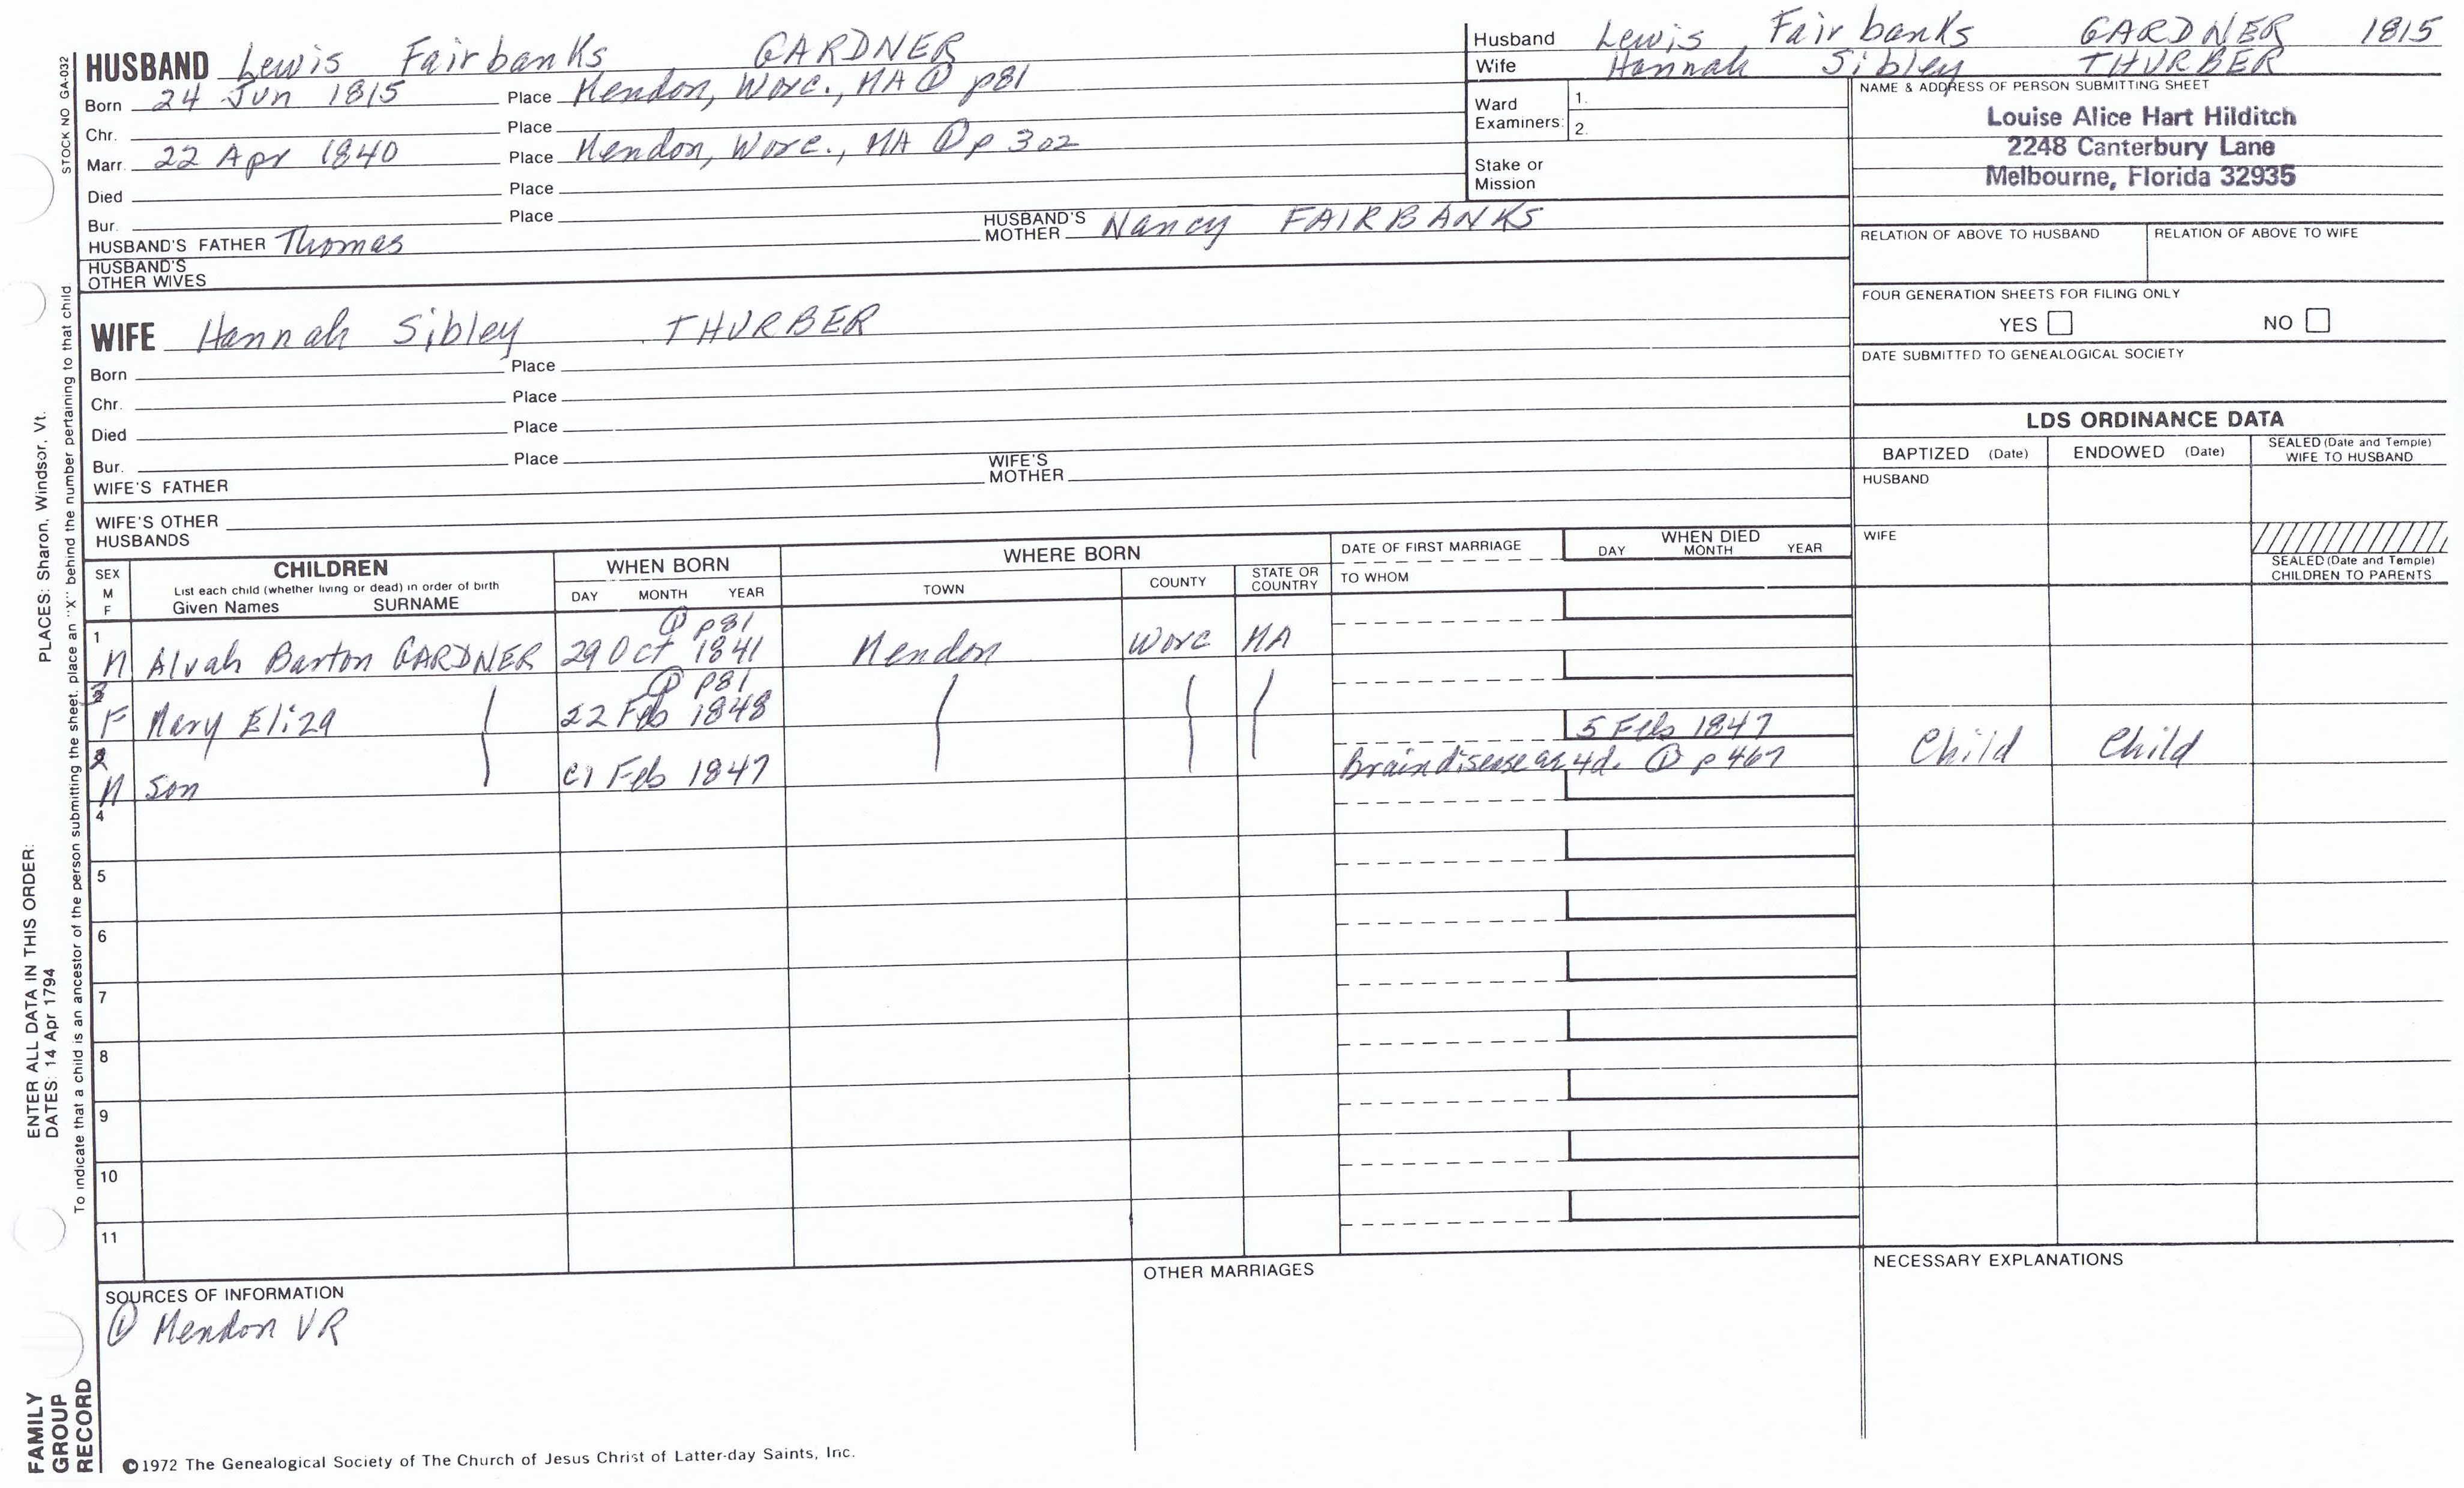 STOCK NO GA-032
HUSBAND Lewis Fairbanks GARDNER
Born 24 Jun 1815 Place Mendon, Worc., MA ① p81
Chr. Place
Marr. 22 Apr 1840 Place Mendon, Worc., MA ① p 302
Died Place
Bur. Place
HUSBAND'S FATHER Thomas HUSBAND'S MOTHER Nancy FAIRBANKS
HUSBAND'S OTHER WIVES
Husband Lewis Fairbanks GARDNER 1815
Wife Hannah Sibley THURBER
Ward Examiners: 1.
2.
Stake or Mission
NAME & ADDRESS OF PERSON SUBMITTING SHEET
Louise Alice Hart Hilditch
2248 Canterbury Lane
Melbourne, Florida 32935
RELATION OF ABOVE TO HUSBAND RELATION OF ABOVE TO WIFE
FOUR GENERATION SHEETS FOR FILING ONLY
YES NO
DATE SUBMITTED TO GENEALOGICAL SOCIETY
WIFE Hannah Sibley THURBER
Born Place
Chr. Place
Died Place
Bur. Place
WIFE'S FATHER WIFE'S MOTHER
WIFE'S OTHER HUSBANDS
LDS ORDINANCE DATA
BAPTIZED (Date) ENDOWED (Date) SEALED (Date and Temple) WIFE TO HUSBAND
HUSBAND
WIFE
SEALED (Date and Temple) CHILDREN TO PARENTS
SEX M F
CHILDREN
List each child (whether living or dead) in order of birth
Given Names SURNAME
WHEN BORN
DAY MONTH YEAR
WHERE BORN
TOWN COUNTY STATE OR COUNTRY
DATE OF FIRST MARRIAGE
TO WHOM
WHEN DIED
DAY MONTH YEAR
① p81
1 M Alvah Barton GARDNER 29 Oct 1841 Mendon Worc MA
① p81
3 F Mary Eliza 22 Feb 1848
5 Feb 1847
2 M Son c1 Feb 1847 Brain disease ag 4d. ① p 467 Child Child
4
5
6
7
8
9
10
11
SOURCES OF INFORMATION
① Mendon VR
OTHER MARRIAGES
NECESSARY EXPLANATIONS
ENTER ALL DATA IN THIS ORDER:
DATES: 14 Apr 1794 PLACES: Sharon, Windsor, Vt.
To indicate that a child is an ancestor of the person submitting the sheet, place an "X" behind the number pertaining to that child
FAMILY GROUP RECORD
©1972 The Genealogical Society of The Church of Jesus Christ of Latter-day Saints, Inc.